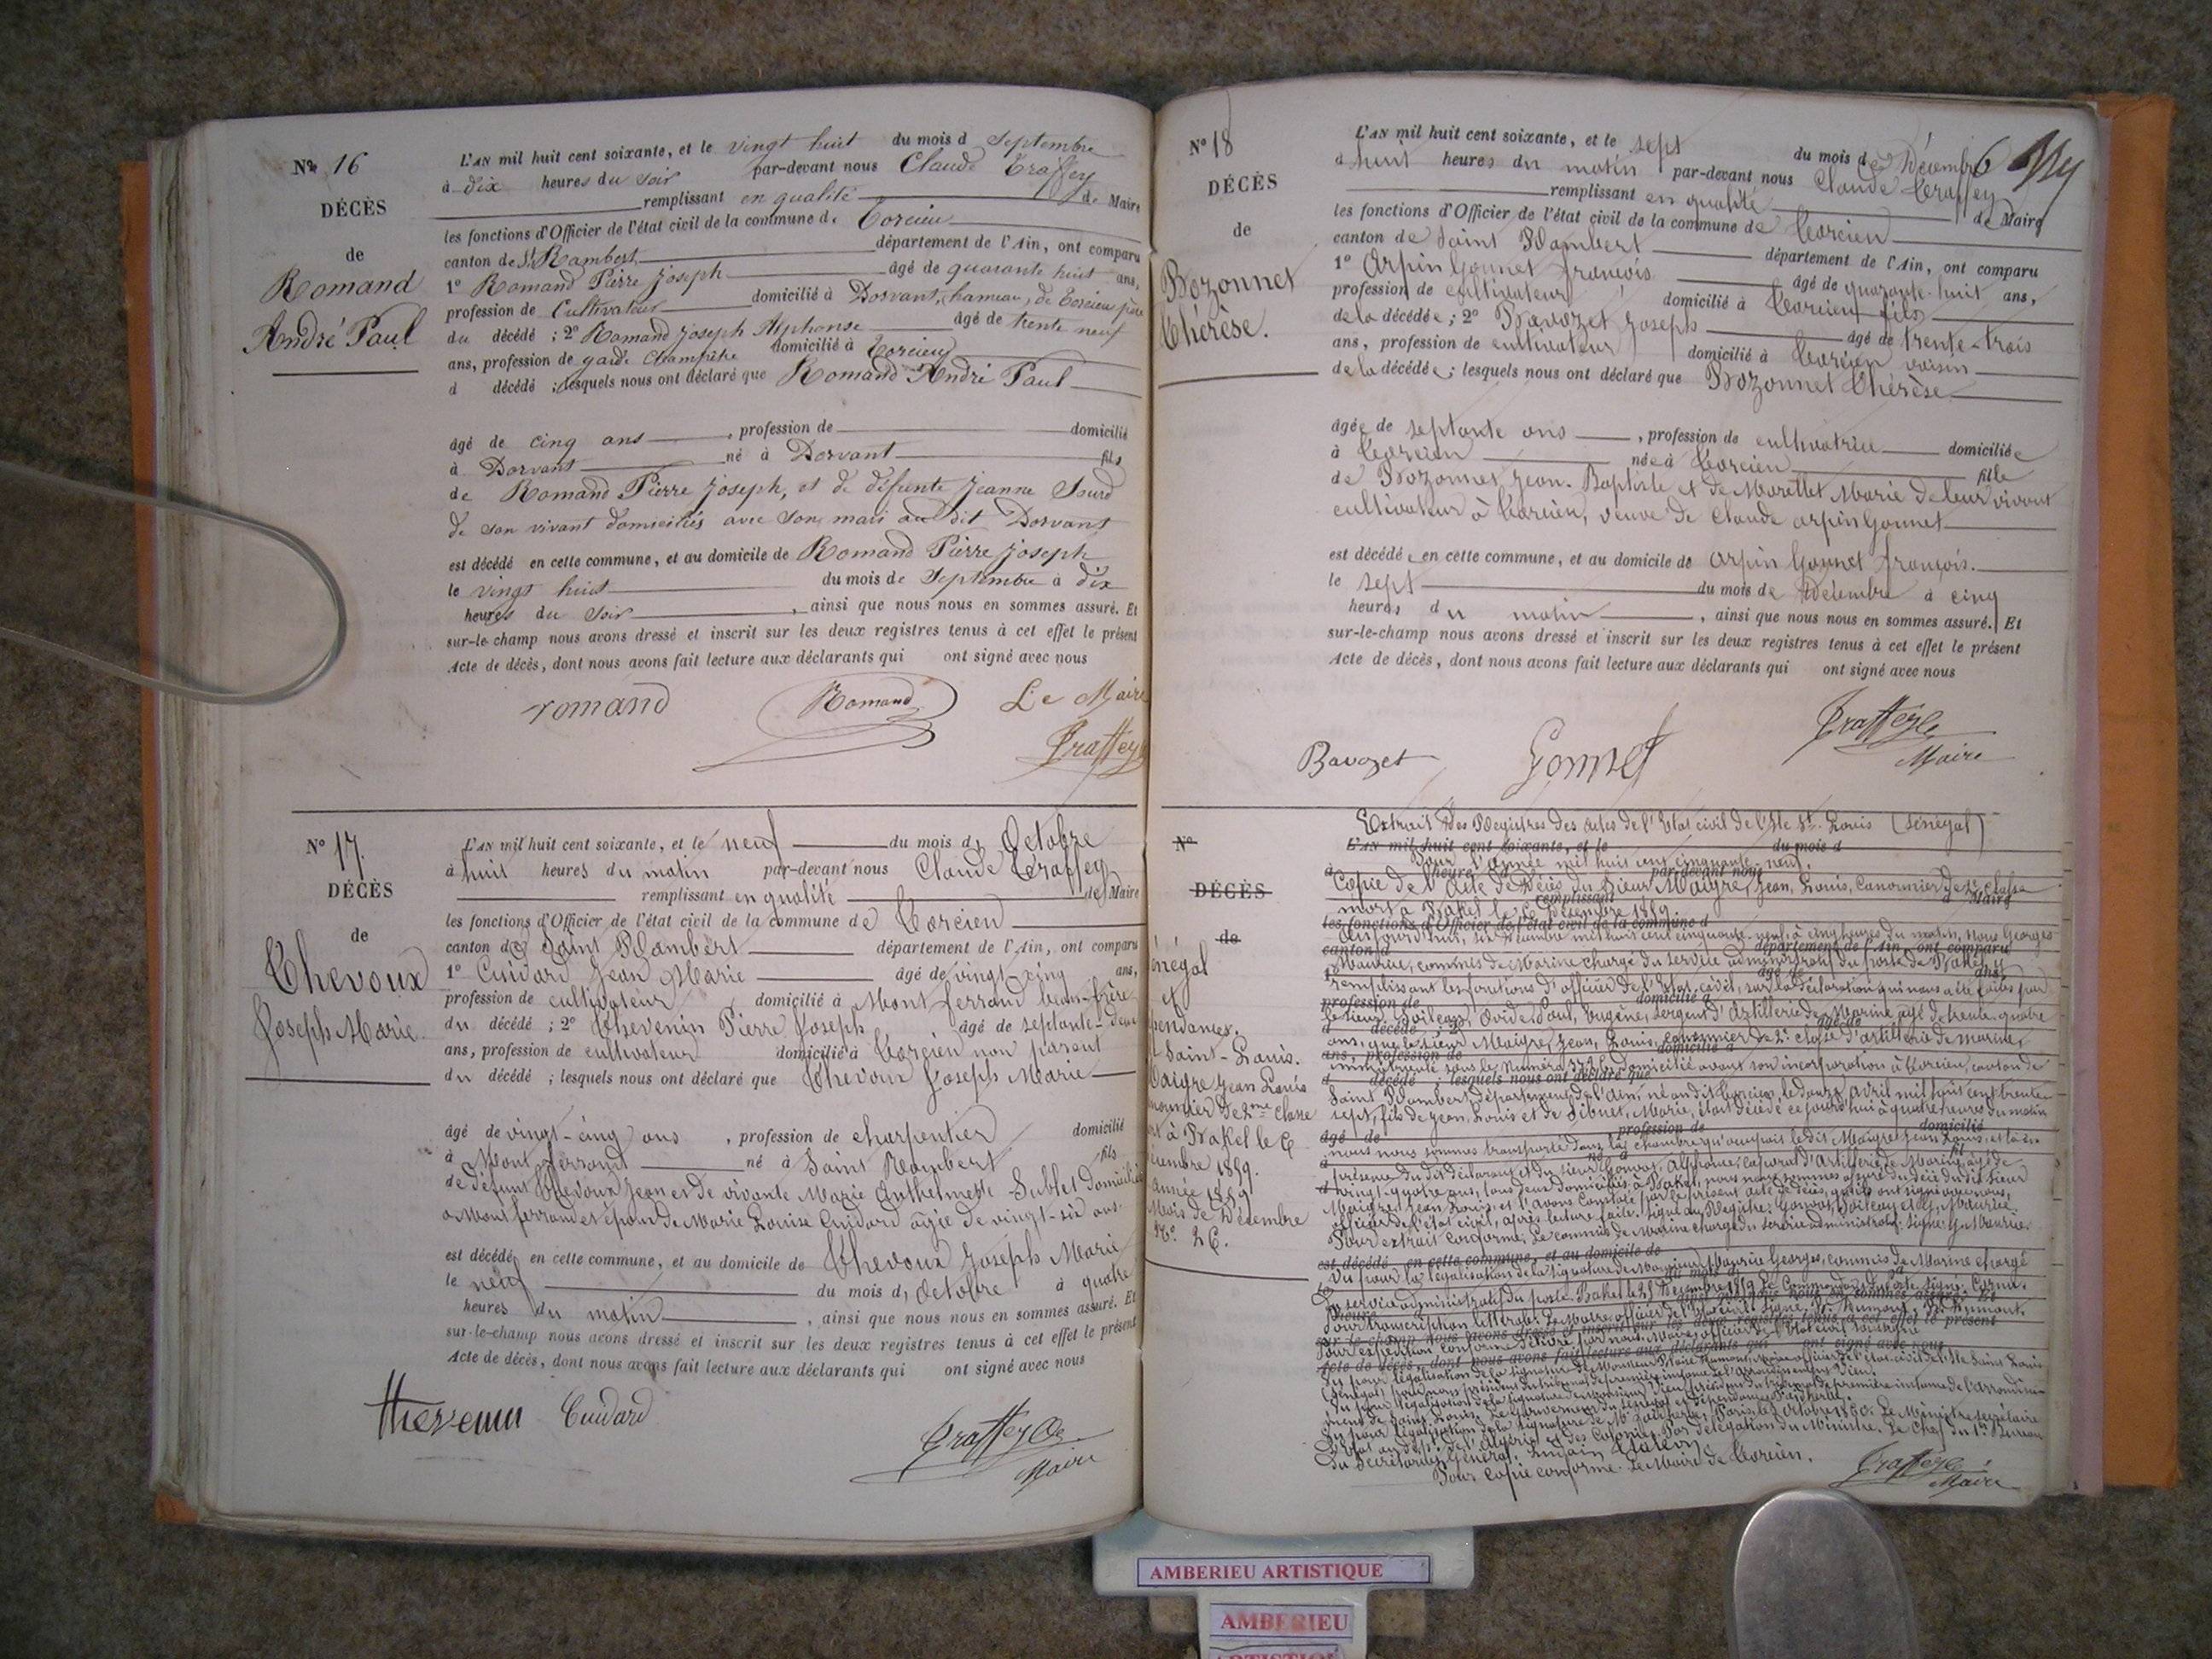 N° 16
DÉCÈS
de
Romand
André Paul
L'AN mil huit cent soixante, et le vingt huit du mois d Septembre
à dix heures du soir par-devant nous Claude Traffey
remplissant en qualité de Maire
les fonctions d'Officier de l'état civil de la commune de Torcieu
canton de St Rambert département de l'Ain, ont comparu
1° Romand Pierre Joseph âgé de quarante huit ans,
profession de Cultivateur domicilié à Dorvant, hameau de Torcieu père
du décédé ; 2° Romand Joseph Alphonse âgé de trente neuf
ans, profession de garde champêtre domicilié à Torcieu
d décédé ; lesquels nous ont déclaré que Romand André Paul
âgé de cinq ans , profession de domicilié
à Dorvant né à Dorvant fils
de Romand Pierre Joseph, et de défunte Jeanne Sourd
de son vivant domiciliés avec son mari au dit Dorvant
est décédé en cette commune, et au domicile de Romand Pierre Joseph
le vingt huit du mois de Septembre à dix
heures du soir , ainsi que nous nous en sommes assuré. Et
sur-le-champ nous avons dressé et inscrit sur les deux registres tenus à cet effet le présent
Acte de décès, dont nous avons fait lecture aux déclarants qui ont signé avec nous
romand Romand Le Maire
Traffey
N° 17.
DÉCÈS
de
Thevoux
Joseph Marie
L'AN mil huit cent soixante, et le neuf du mois d Octobre
à huit heures du matin par-devant nous Claude Traffey
remplissant en qualité de Maire
les fonctions d'Officier de l'état civil de la commune de Torcieu
canton de Saint Rambert département de l'Ain, ont comparu
1° Cuidard Jean Marie âgé de vingt-cinq ans,
profession de cultivateur domicilié à Mont ferrand beau-frère
du décédé ; 2° Thevenin Pierre Joseph âgé de septante-deux
ans, profession de cultivateur domicilié à Torcieu non parent
du décédé ; lesquels nous ont déclaré que Thevoux Joseph Marie
âgé de vingt-cinq ans , profession de charpentier domicilié
à Mont ferrand né à Saint Rambert fils
de défunt Thevoux Jean et de vivante Marie Anthelmette Sublet domiciliée
à Mont ferrand et époux de Marie Louise Cuidard âgée de vingt-six ans.
est décédé en cette commune, et au domicile de Thevoux Joseph Marie
le neuf du mois d'Octobre à quatre
heures du matin , ainsi que nous nous en sommes assuré. Et
sur-le-champ nous avons dressé et inscrit sur les deux registres tenus à cet effet le présent
Acte de décès, dont nous avons fait lecture aux déclarants qui ont signé avec nous
thevenin Cuidard Traffey
Maire
N° 18
DÉCÈS
de
Bozonnet
Thérèse.
6
L'AN mil huit cent soixante, et le sept du mois de Décembre
à huit heures du matin par-devant nous Claude Traffey
remplissant en qualité de Maire
les fonctions d'Officier de l'état civil de la commune de Torcieu
canton de Saint Rambert département de l'Ain, ont comparu
1° Arpin Gonnet françois âgé de quarante-huit ans,
profession de cultivateur domicilié à Torcieu fils
de la décédée ; 2° Bavozet Joseph âgé de trente-trois
ans, profession de cultivateur domicilié à Torcieu voisin
de la décédée ; lesquels nous ont déclaré que Bozonnet Thérèse
âgée de septante ans , profession de cultivatrice domiciliée
à Torcieu née à Torcieu fille
de Bozonnet Jean-Baptiste et de Morettet Marie de leur vivant
cultivateur à Torcieu, veuve de Claude arpin Gonnet
est décédée en cette commune, et au domicile de Arpin Gonnet françois.
le sept du mois de Décembre à cinq
heures du matin , ainsi que nous nous en sommes assuré. Et
sur-le-champ nous avons dressé et inscrit sur les deux registres tenus à cet effet le présent
Acte de décès, dont nous avons fait lecture aux déclarants qui ont signé avec nous
Bavozet Gonnet Traffey
Maire
N°
DÉCÈS
de
énégal
et
pendances.
Saint-Louis.
aigre Jean Louis
nonnier de 2me classe
rt à Bakel le 6
cembre 1859.
année 1859
Mois de Décembre
N° 26.
Extrait des Registres des actes de l'Etat civil de l'Ile St. Louis (Sénégal)
Pour l'année mil huit cent cinquante-neuf.
Copie de l'acte de Décès du Sieur Maigre, Jean, Louis, Canonnier de 2e classe
mort à Bakel le 6 Décembre 1859.
Aujourd'hui, six Décembre mil huit cent cinquante-neuf, à cinq heures du matin, nous Georges
Maurice, commis de Marine chargé du service administratif du poste de Bakel, y
remplissant les fonctions d'officier de l'Etat civil, sur la déclaration qui nous a été faite par
le sieur Ovide, Paul, Eugène, sergent d'Artillerie de Marine âgé de trente-quatre
ans, que le sieur Maigre, Jean, Louis, canonnier de 2e classe d'artillerie de marine,
immatriculé sous le Numéro domicilié avant son incorporation à Torcieu, canton de
Saint Rambert, département de l'Ain, né au dit Torcieu, le douze avril mil huit cent trente
sept, fils de Jean, Louis et de Marie, était décédé ce jourd'hui à quatre heures du matin
nous nous sommes transporté dans la chambre qu'occupait le dit Maigre Jean Louis, et là en
présence du dit déclarant et du sieur Alphonse, caporal d'Artillerie de Marine, âgé de
vingt-quatre ans, tous deux domiciliés à Bakel, nous nous sommes assuré du décès du dit sieur
Maigre, Jean, Louis, et l'avons constaté par le présent acte de décès, qu'ils ont signé avec nous,
officier de l'état civil, après lecture faite.
Pour extrait conforme, Le commis de Marine chargé du service administratif. Signé: G. Maurice.
Vu pour la légalisation de la signature de Monsieur Maurice Georges, commis de Marine chargé
du service administratif du poste.
Pour copie conforme. Le Maire de Torcieu.
Traffey
Maire
AMBERIEU ARTISTIQUE
AMBERIEU
ARTISTIQUE